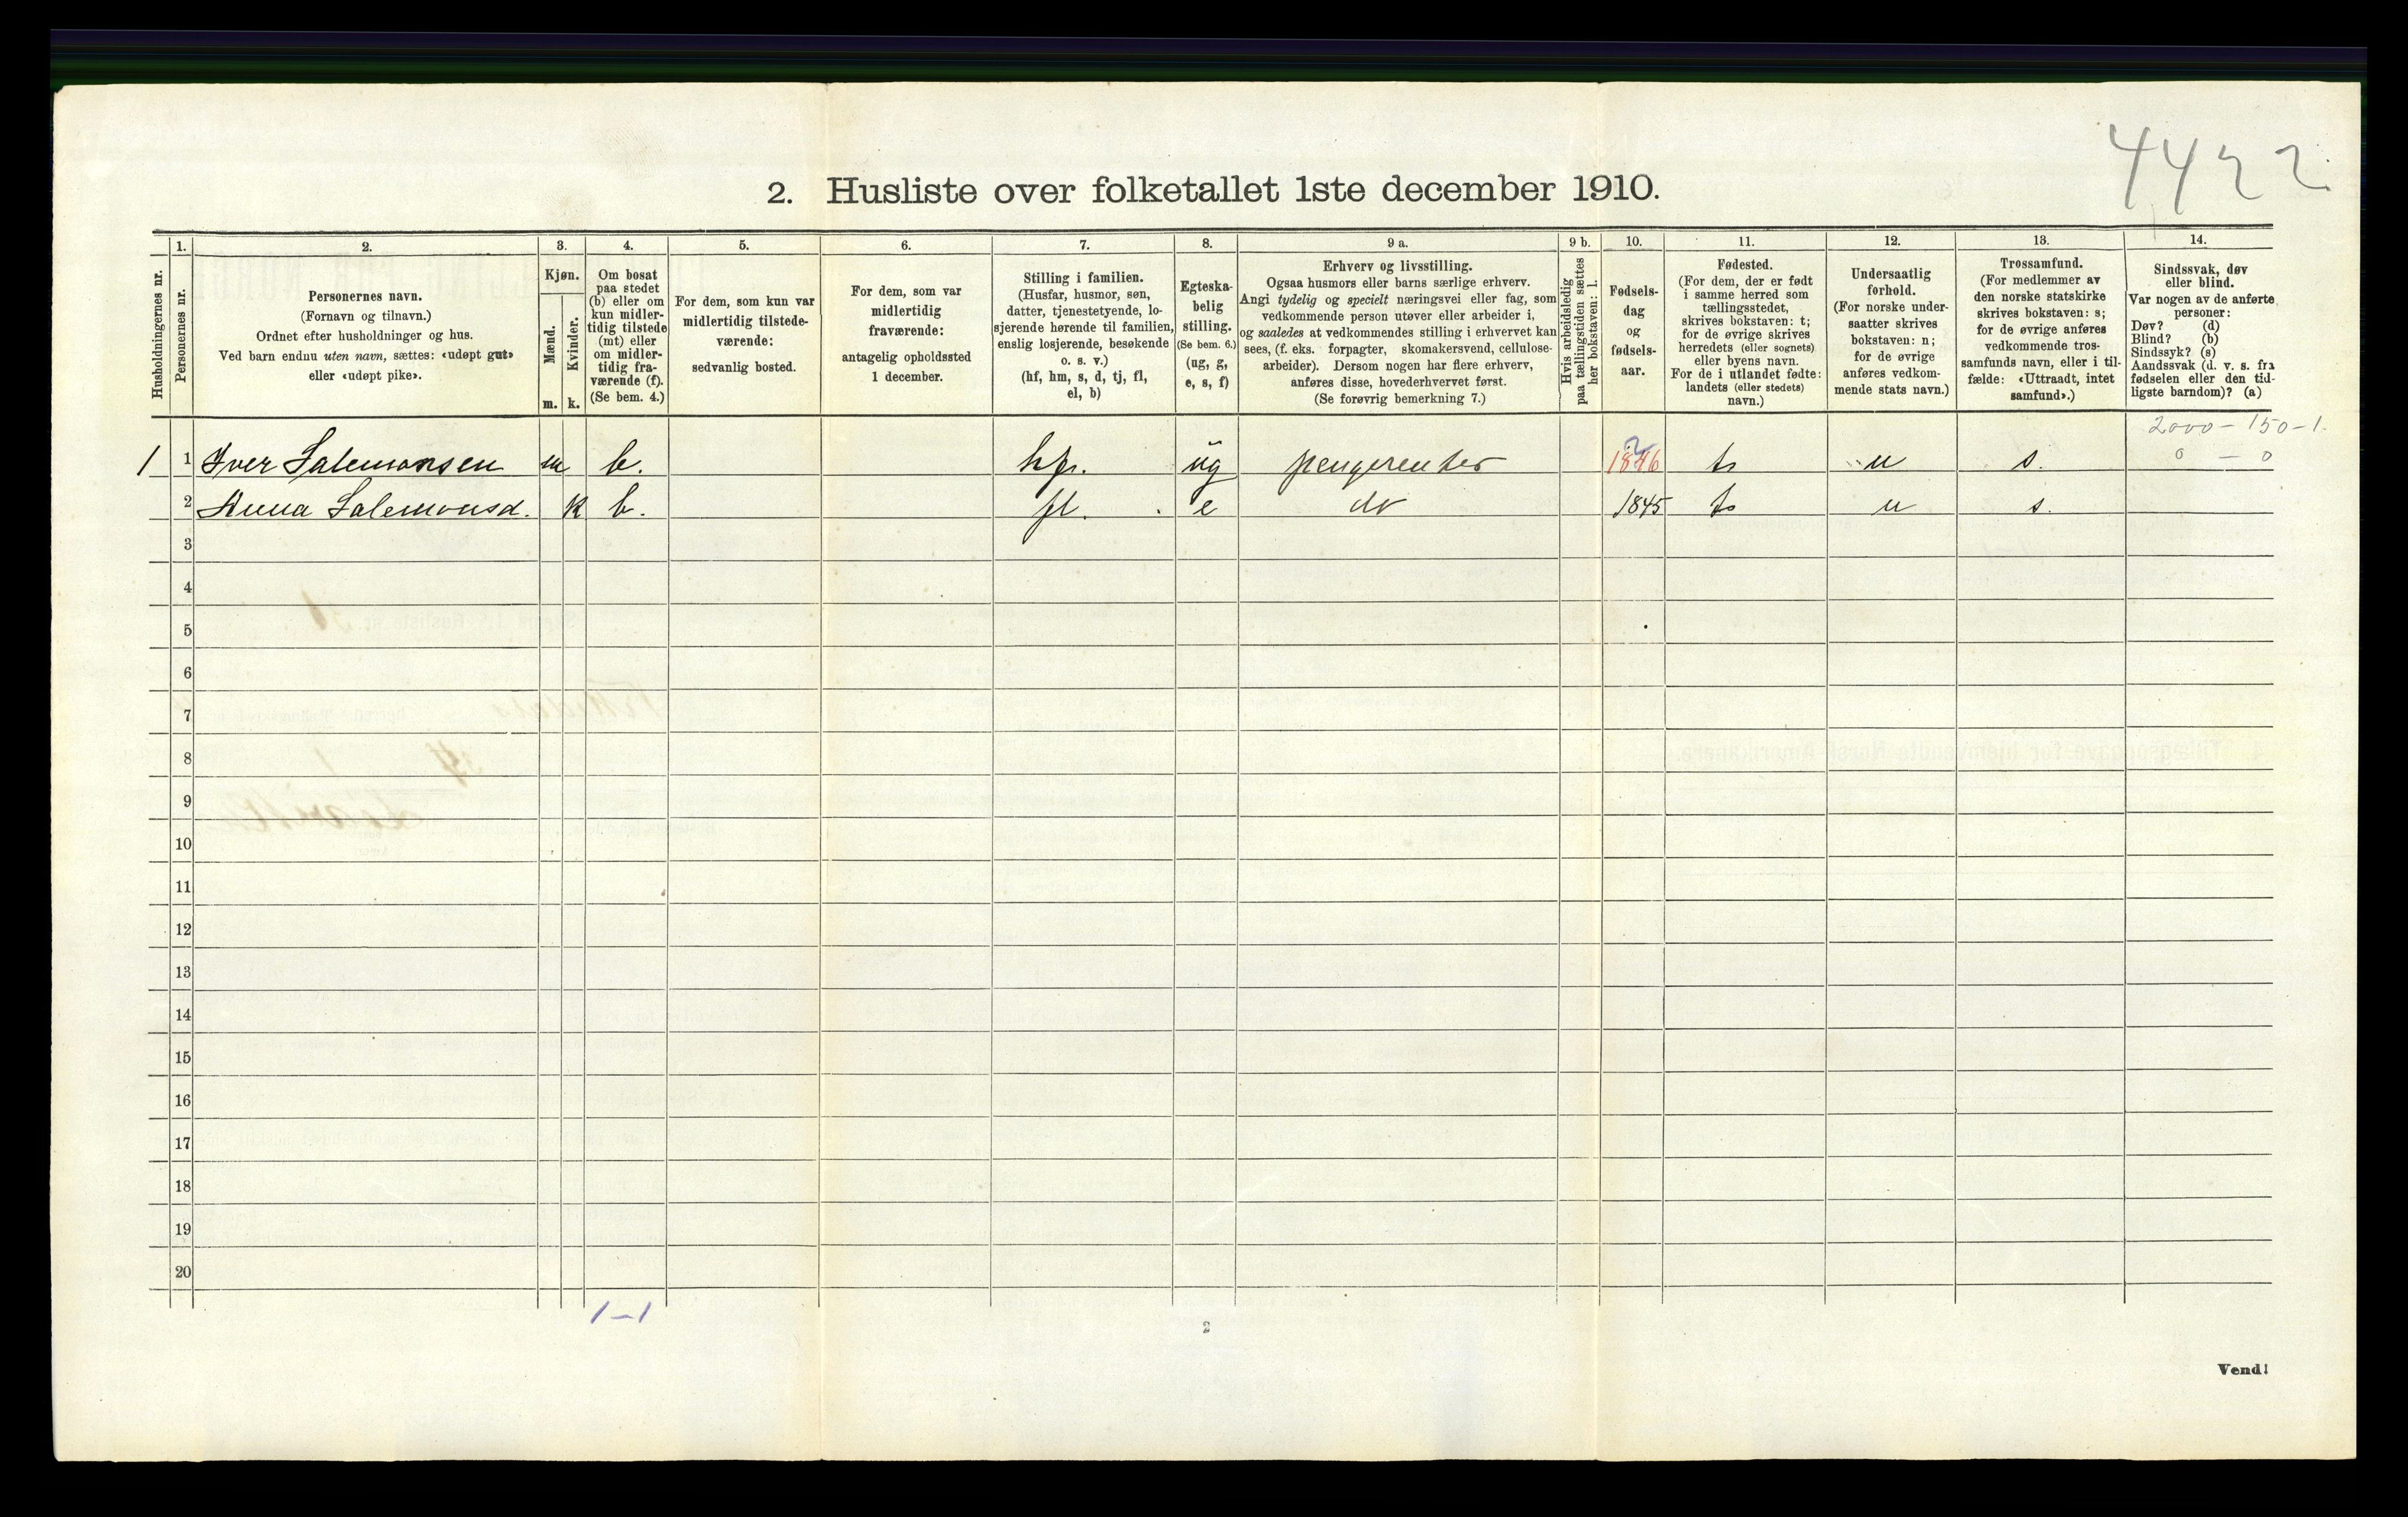 4422
2. Husliste over folketallet 1ste december 1910.
1. 2. 3. 4. 5. 6. 7. 8. 9 a. 9 b. 10. 11. 12. 13. 14.
Husholdningernes nr.
Personernes nr.
Personernes navn.
(Fornavn og tilnavn.)
Ordnet efter husholdninger og hus.
Ved barn endnu uten navn, sættes: «udøpt gut»
eller «udøpt pike».
Kjøn.
Mænd.
Kvinder.
m. k.
Om bosat
paa stedet
(b) eller om
kun midler-
tidig tilstede
(mt) eller
om midler-
tidig fra-
værende (f).
(Se bem. 4.)
For dem, som kun var
midlertidig tilstede-
værende:
sedvanlig bosted.
For dem, som var
midlertidig
fraværende:
antagelig opholdssted
1 december.
Stilling i familien.
(Husfar, husmor, søn,
datter, tjenestetyende, lo-
sjerende hørende til familien,
enslig losjerende, besøkende
o. s. v.)
(hf, hm, s, d, tj, fl,
el, b)
Egteska-
belig
stilling.
(Se bem. 6.)
(ug, g,
e, s, f)
Erhverv og livsstilling.
Ogsaa husmors eller barns særlige erhverv.
Angi tydelig og specielt næringsvei eller fag, som
vedkommende person utøver eller arbeider i,
og saaledes at vedkommendes stilling i erhvervet kan
sees, (f. eks. forpagter, skomakersvend, cellulose-
arbeider). Dersom nogen har flere erhverv,
anføres disse, hovederhvervet først.
(Se forøvrig bemerkning 7.)
Hvis arbeidsledig
paa tællingstiden sættes
her bokstaven: l.
Fødsels-
dag
og
fødsels-
aar.
Fødested.
(For dem, der er født
i samme herred som
tællingsstedet,
skrives bokstaven: t;
for de øvrige skrives
herredets (eller sognets)
eller byens navn.
For de i utlandet fødte:
landets (eller stedets)
navn.)
Undersaatlig
forhold.
(For norske under-
saatter skrives
bokstaven: n;
for de øvrige
anføres vedkom-
mende stats navn.)
Trossamfund.
(For medlemmer av
den norske statskirke
skrives bokstaven: s;
for de øvrige anføres
vedkommende tros-
samfunds navn, eller i til-
fælde: «Uttraadt, intet
samfund».)
Sindssvak, døv
eller blind.
Var nogen av de anførte
personer:
Døv? (d)
Blind? (b)
Sindssyk? (s)
Aandssvak (d. v. s. fra
fødselen eller den tid-
ligste barndom)? (a)
2000 – 150 – 1.
0 – 0
1 1 Iver Salemonsen m b. hf. ug pengerenter 1846 t n s.
2 Anna Salemonsd. k b. fl. e do 1845 t n s.
3
4
5
6
7
8
9
10
11
12
13
14
15
16
17
18
19
20
1–1
2
Vend!